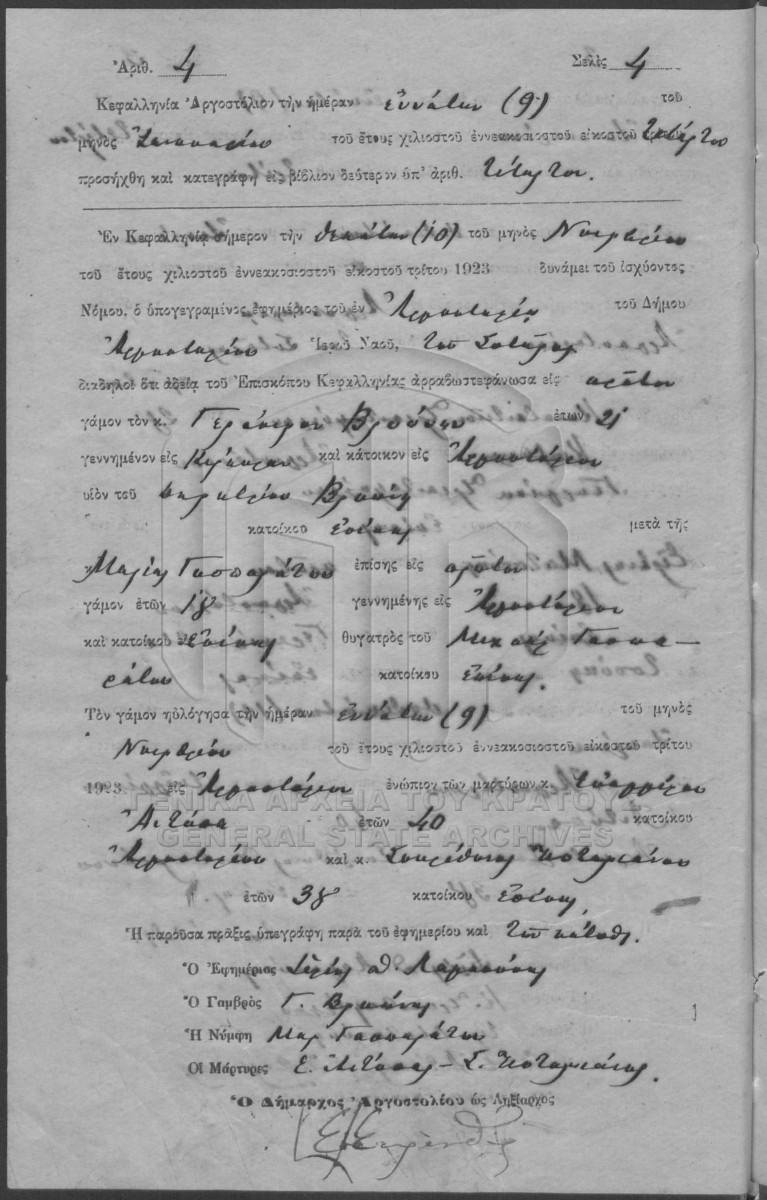 Ἀριθ. 4 Σελὶς 4
Κεφαλληνία Ἀργοστόλιον τὴν ἡμέραν ἐννάτην (9) τοῦ
μηνὸς Ἰανουαρίου τοῦ ἔτους χιλιοστοῦ ἐννεακοσιοστοῦ εἰκοστοῦ τετάρτου
προσήχθη καὶ κατεγράφη εἰς βιβλίον δεύτερον ὑπ' ἀριθ. τέταρτον.
Ἐν Κεφαλληνίᾳ σήμερον τὴν δεκάτην (10) τοῦ μηνὸς Νοεμβρίου
τοῦ ἔτους χιλιοστοῦ ἐννεακοσιοστοῦ εἰκοστοῦ τρίτου 1923 δυνάμει τοῦ ἰσχύοντος
Νόμου, ὁ ὑπογεγραμένος ἐφημέριος τοῦ ἐν Ἀργοστολίῳ τοῦ Δήμου
Ἀργοστολίου Ἱεροῦ Ναοῦ, τοῦ Σωτῆρος
διαδηλοῖ ὅτι ἀδείᾳ τοῦ Ἐπισκόπου Κεφαλληνίας ἀρραβωστεφάνωσα εἰς πρῶτον
γάμον τὸν κ. Γεράσιμον ἐτῶν 21
γεννημένον εἰς Κέρκυραν καὶ κάτοικον εἰς Ἀργοστόλιον
υἱὸν τοῦ Δημητρίου
κατοίκου ἐπίσης μετὰ τῆς
Μαρίας Γασπαράτου ἐπίσης εἰς πρῶτον
γάμον ἐτῶν 18 γεννημένης εἰς Ἀργοστόλιον
καὶ κατοίκου ἐπίσης θυγατρὸς τοῦ Μιχαὴλ Γασπα-
ράτου κατοίκου ἐπίσης.
Τὸν γάμον ηὐλόγησα τὴν ἡμέραν ἐννάτην (9) τοῦ μηνὸς
Νοεμβρίου τοῦ ἔτους χιλιοστοῦ ἐννεακοσιοστοῦ εἰκοστοῦ τρίτου
1923 εἰς Ἀργοστόλιον ἐνώπιον τῶν μαρτύρων κ.
ΓΕΝΙΚΑ ΑΡΧΕΙΑ ΤΟΥ ΚΡΑΤΟΥΣ
ἐτῶν 40 κατοίκου
GENERAL STATE ARCHIVES
Ἀργοστολίου καὶ κ. Σπυρίδωνος Ποταμιάνου
ἐτῶν 38 κατοίκου ἐπίσης
Ἡ παροῦσα πρᾶξις ὑπεγράφη παρὰ τοῦ ἐφημερίου καὶ τῶν κάτωθι.
Ὁ Ἐφημέριος
Ὁ Γαμβρὸς Γ.
Ἡ Νύμφη Μαρ Γασπαράτου
Οἱ Μάρτυρες Ε. – Σ. Ποταμιάνος.
Ὁ Δήμαρχος Ἀργοστολίου ὡς Ληξίαρχος